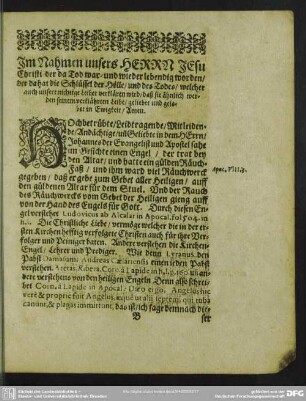 Im Nahmen unsers HERRN JEsu
Christi der da Tod war, und wieder lebendig worden/
der da hat die Schlüssel der Hölle/ und des Todes/ welcher
auch unsere nichtige Leiber verklären wird/ daß sie ähnlich werden
seinem verklährten Leibe/ gelobet und geliebet
in Ewigkeit/ Amen.
HOchbetrübte/ Leidtragende/ Mitleidende/
Andächtige/ uñ Geliebte in dem HErrn/
Johannes der Evangelist und Apostel sahe
im Gesichte einen Engel/ der trat bey
den Altar/ und hatte ein gülden Räuch-
Faß/ und ihm ward viel Räuchwerck
gegeben/ daß er gebe zum Gebet aller Heiligen/ auff
den güldenen Altar für dem Stuel. Und der Rauch
des Räuchwercks vom Gebet der Heiligen gieng auff
von der Hand des Engels für Gott. Durch diesen Engel
verstehet Ludovicus ab Alcasar in Apocal. fol 504.
Apoc. VIII.3.
n. Die Christliche Liebe/ vermöge welcher die in der ersten
Kirchen hefftig verfolgte Christen auch für ihre Verfolger
und Peiniger baten. Andere verstehen die Kirchen-
Engel/ Lehrer und Prediger. Wie denn Lyranus den
Pabst Damasum, Andreas Cæsariensis einen jeden Pabst
verstehen. Ribera, Corn. à Lapide in h. l. p.160. und andere
verstehens von den heiligen Engeln. Denn also schreibet
Corn. à Lapide in Apocal. Dico ergo, Angelus hic
vere & proprie fuit Angelus, æquè ut alii septem, qui tuba
canunt, & plagas immittunt, das ist/ ich sage demnach dieser
B